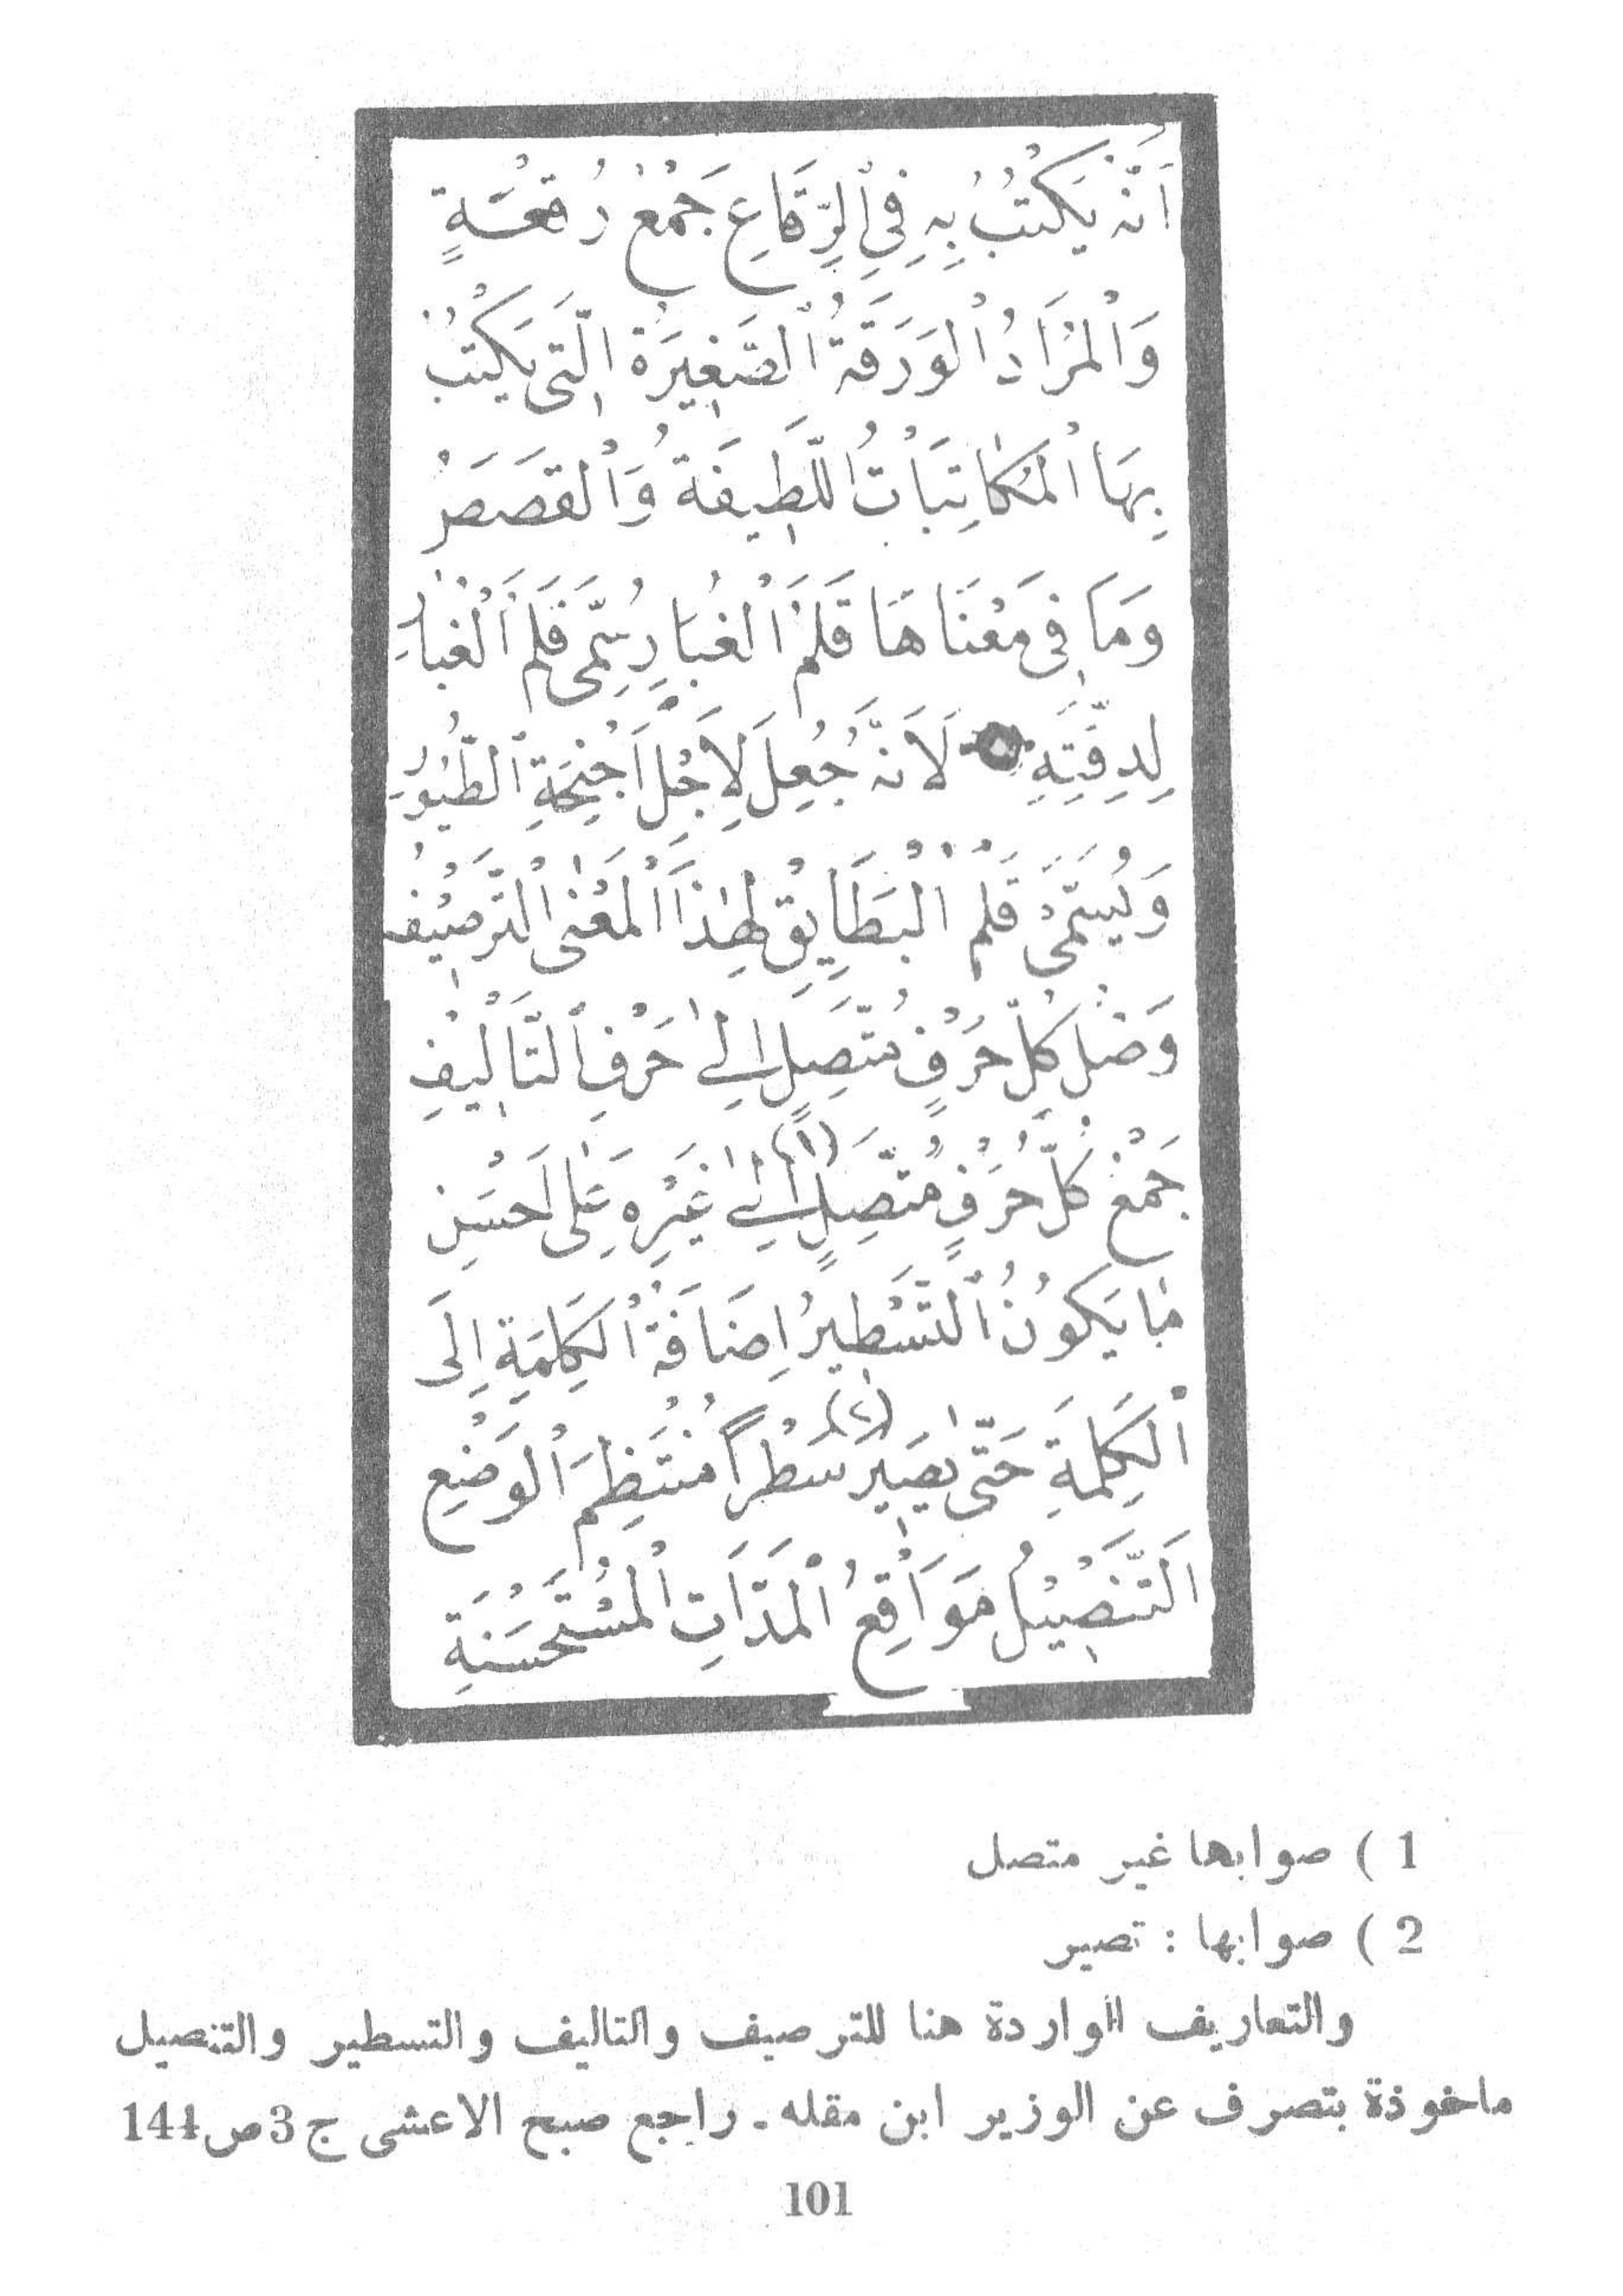 أَنَّهُ يَكْتُبُ بِهِ فِي ٱلرِّقَاعِ جَمْعُ رُقْعَةٍ
وَٱلْمُرَادُ ٱلْوَرَقَةُ ٱلصَّغِيرَةُ الَّتِي يَكْتُبُ
بِهَا ٱلْمُكَاتِبَاتُ اللَّطِيفَةُ وَٱلْقَصَصُ
وَمَا فِي مَعْنَاهَا قَلَمُ ٱلْغُبَارِ سُمِّىَ قَلَمُ ٱلْغُبَارِ
لِدِقَّتِهِ لَأَنَّهُ جُعِلَ لِأَجْلِ أَجْنِحَةِ ٱلطُّيُورِ
وَيُسَمَّى قَلَمُ ٱلْبَطَايِقِ لِهٰذَا ٱلْمَعْنٰى ٱلتَّرْصِيفُ
وَصْلُ كُلِّ حَرْفٍ مُتَّصِلٍ اِلٰى حَرْفِ ٱلتَّأْلِيفِ
جَمْعُ كُلِّ حَرْفٍ مُتَّصِلٍ (١) اِلٰى غَيْرِهِ عَلٰى اَحْسَنِ
مَا يَكُونُ ٱلتَّسْطِيرُ اِضَافَةُ ٱلْكَلِمَةِ اِلَى
ٱلْكَلِمَةِ حَتّٰى يَصِيرَ (٢) سَطْرًا مُنْتَظِمَ ٱلْوَضْعِ
اَلتَّنْصِيلُ مَوَاقِعُ ٱلْمَدَّاتِ ٱلْمُسْتَحْسَنَةِ
1 ) صوابها غير متصل
2 ) صوابها : تصير
والتعاريف الواردة هنا للترصيف والتاليف والتسطير والتنصيل
ماخوذة بتصرف عن الوزير ابن مقله ـ راجع صبح الاعشى ج 3 ص 144
101